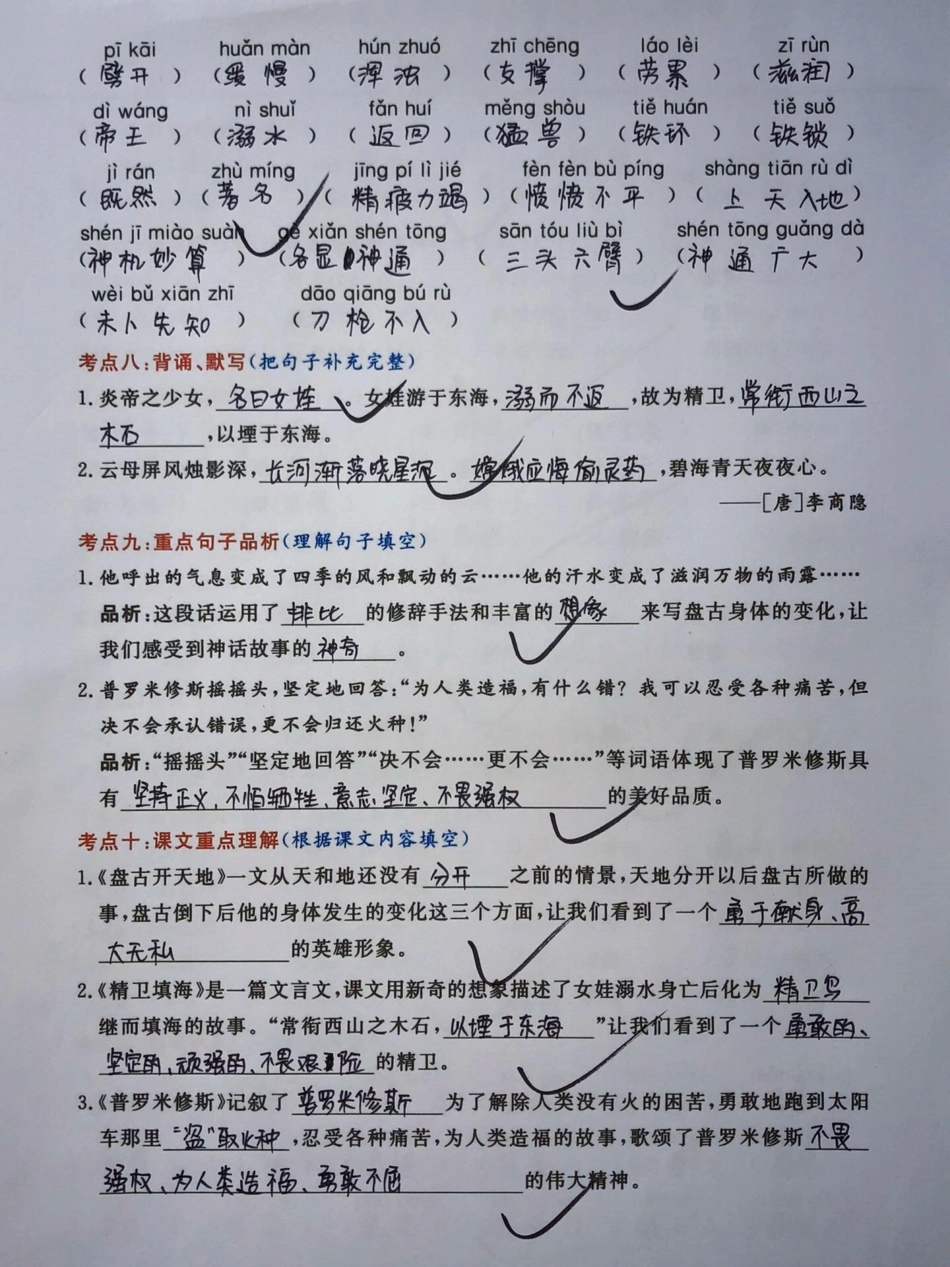 pī kāi huǎn màn hún zhuó zhī chēng láo lèi zī rùn
(劈开)(缓慢)(浑浊)(支撑)(劳累)(滋润)
dì wáng nì shuǐ fǎn huí měng shòu tiě huán tiě suǒ
(帝王)(溺水)(返回)(猛兽)(铁环)(铁锁)
jì rán zhù míng jīng pí lì jié fèn fèn bù píng shàng tiān rù dì
(既然)(著名)(精疲力竭)(愤愤不平)(上天入地)
shén jī miào suàn gè xiǎn shén tōng sān tóu liù bì shén tōng guǎng dà
(神机妙算)(各显神通)(三头六臂)(神通广大)
wèi bǔ xiān zhī dāo qiāng bú rù
(未卜先知)(刀枪不入)
考点八:背诵、默写(把句子补充完整)
1.炎帝之少女,名曰女娃。女娃游于东海,溺而不返,故为精卫,常衔西山之
木石,以堙于东海。
2.云母屏风烛影深,长河渐落晓星沉。嫦娥应悔偷灵药,碧海青天夜夜心。
——[唐]李商隐
考点九:重点句子品析(理解句子填空)
1.他呼出的气息变成了四季的风和飘动的云……他的汗水变成了滋润万物的雨露……
品析:这段话运用了排比的修辞手法和丰富的想象来写盘古身体的变化,让
我们感受到神话故事的神奇。
2.普罗米修斯摇摇头,坚定地回答:“为人类造福,有什么错?我可以忍受各种痛苦,但
决不会承认错误,更不会归还火种!”
品析:“摇摇头”“坚定地回答”“决不会……更不会……”等词语体现了普罗米修斯具
有坚持正义、不怕牺牲、意志坚定、不畏强权的美好品质。
考点十:课文重点理解(根据课文内容填空)
1.《盘古开天地》一文从天和地还没有分开之前的情景,天地分开以后盘古所做的
事,盘古倒下后他的身体发生的变化这三个方面,让我们看到了一个勇于献身、高
大无私的英雄形象。
2.《精卫填海》是一篇文言文,课文用新奇的想象描述了女娃溺水身亡后化为精卫鸟
继而填海的故事。“常衔西山之木石,以堙于东海”让我们看到了一个勇敢的、
坚定的、顽强的、不畏艰险的精卫。
3.《普罗米修斯》记叙了普罗米修斯为了解除人类没有火的困苦,勇敢地跑到太阳
车那里“盗”取火种,忍受各种痛苦,为人类造福的故事,歌颂了普罗米修斯不畏
强权、为人类造福、勇敢不屈的伟大精神。